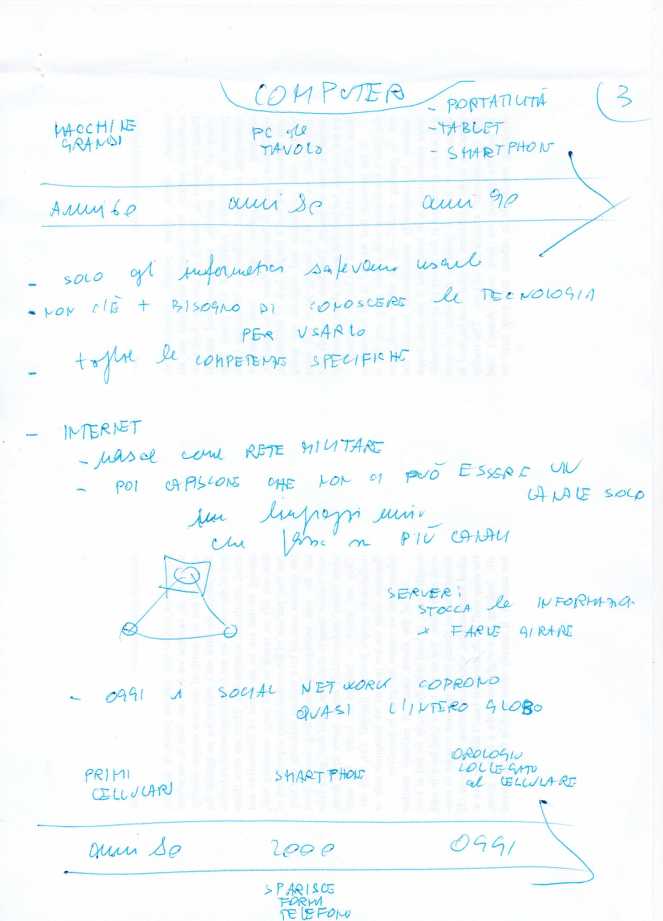 COMPUTER
3
MACCHINE
GRANDI
PC da
TAVOLO
- PORTATILITÀ
- TABLET
- SMARTPHON
ANNI 60
anni 80
anni 90
- SOLO gli informatici sapevano usarlo
- NON C'È + BISOGNO DI CONOSCERE le TECNOLOGIA
PER USARLO
- le COMPETENZE SPECIFICHE
- INTERNET
- nasce come RETE MILITARE
- POI CAPISCONO CHE NON CI PUÒ ESSERE UN
CANALE SOLO
PIÙ CANALI
SERVER:
STOCCA le INFORMAZ.
x FARLE GIRARE
- OGGI I SOCIAL NETWORK COPRONO
QUASI L'INTERO GLOBO
PRIMI
CELLULARI
SMARTPHONE
OROLOGIO
COLLEGATO
al CELLULARE
anni 80
2000
OGGI
SPARISCE
FORMA
TELEFONO